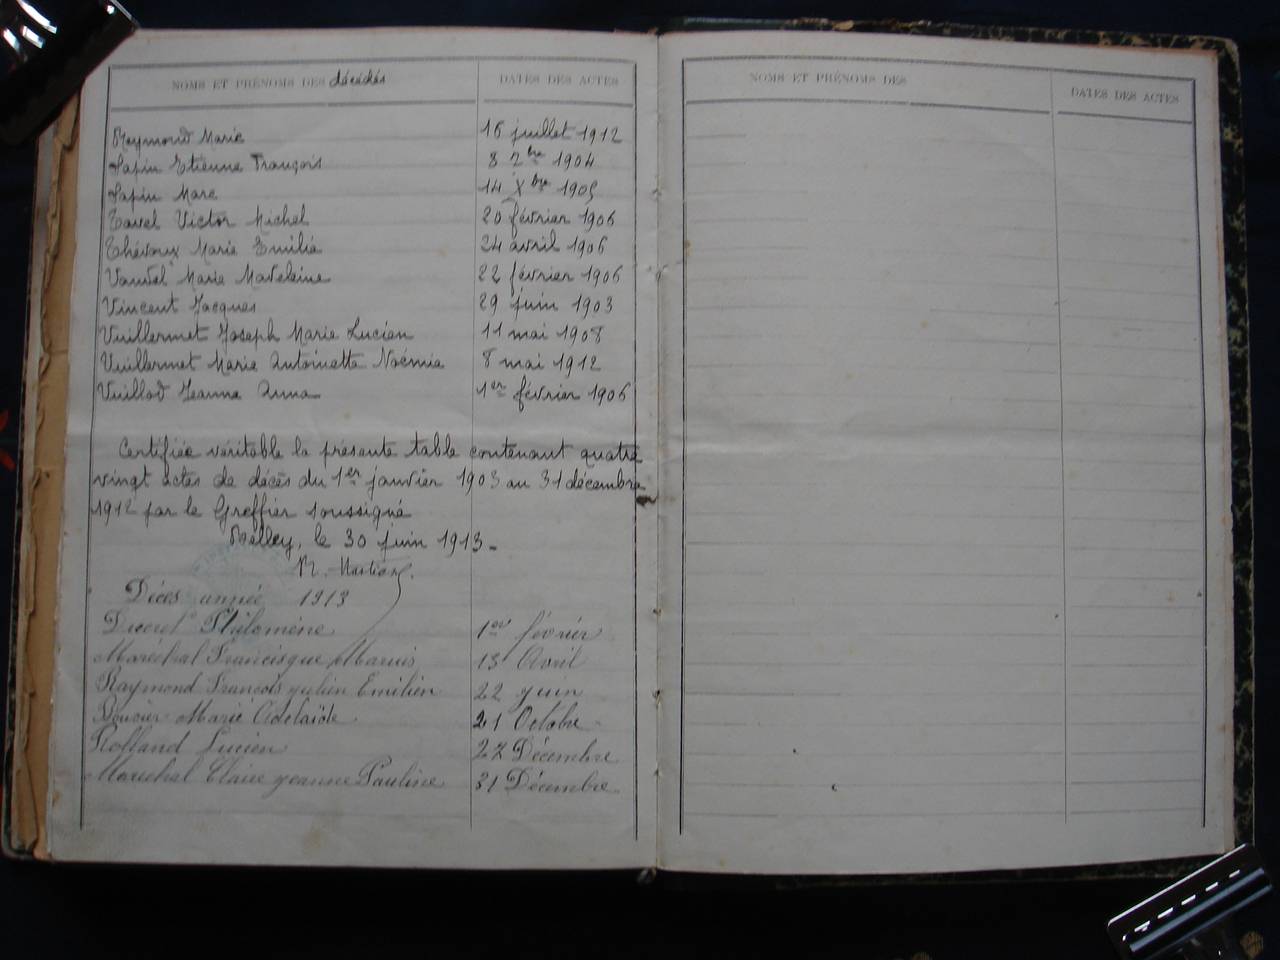 NOMS ET PRÉNOMS DES décédés DATES DES ACTES
Raymond Marie 16 juillet 1912
Sapin Etienne François 8 7bre 1904
Sapin Marc 14 Xbre 1905
Tavel Victor Michel 20 février 1906
Thévoux Marie Emilie 24 avril 1906
Marie Madeleine 22 février 1906
Vincent Jacques 29 juin 1903
Vuillermet Joseph Marie Lucien 11 mai 1908
Vuillermet Marie Antoinette Noémie 8 mai 1912
Vuillod Jeanne Anna 1er février 1906
Certifiée véritable la présente table contenant quatre
vingt actes de décès du 1er janvier 1903 au 31 décembre
1912 par le Greffier soussigné
Belley, le 30 juin 1913.
Décès année 1913
Ducret Philomène 1er février
Maréchal Francisque Marius 13 Avril
Raymond François julien Emilien 22 juin
Bouvier Marie Adelaïde 21 Octobre
Rolland Lucien 27 Décembre
Maréchal Claire jeanne Pauline 31 Décembre
NOMS ET PRÉNOMS DES DATES DES ACTES